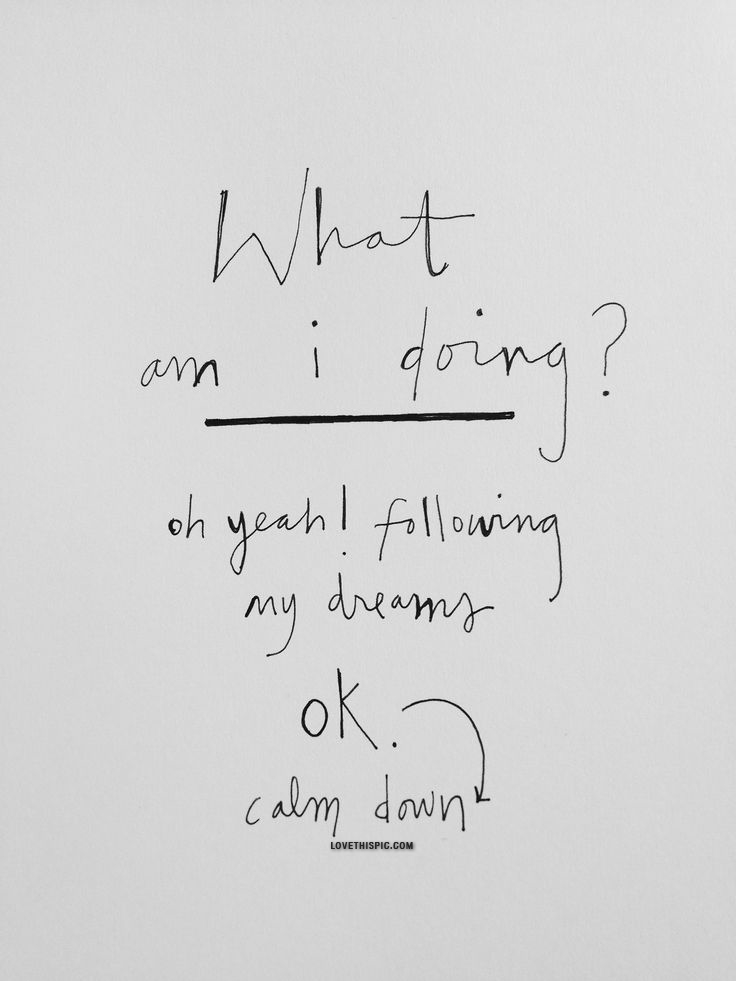 What
am i doing?
oh yeah! following
my dreams
OK.
calm down
LOVETHISPIC.COM